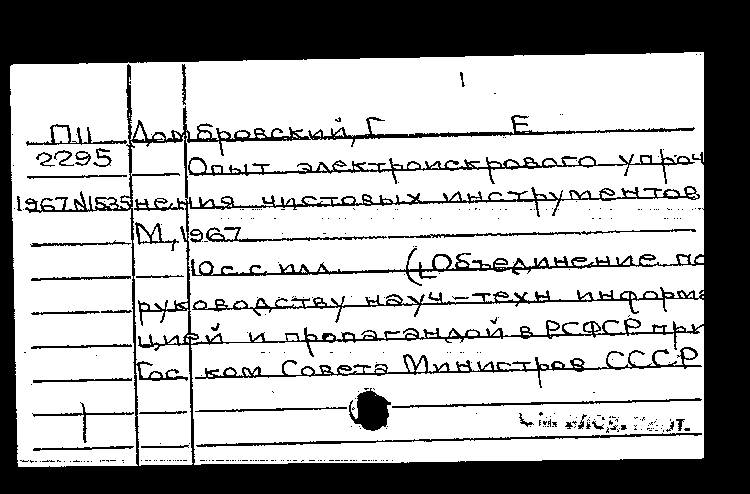 П11 Домбровский, Г Е
2295 Опыт электроискрового упроч
1967 N1535 нения чистовых инструментов
М, 1967
10 с. с илл. (Объединение по
руководству науч.-техн. информа
цией и пропагандой в РСФСР при
Гос. ком Совета Министров СССР
См.